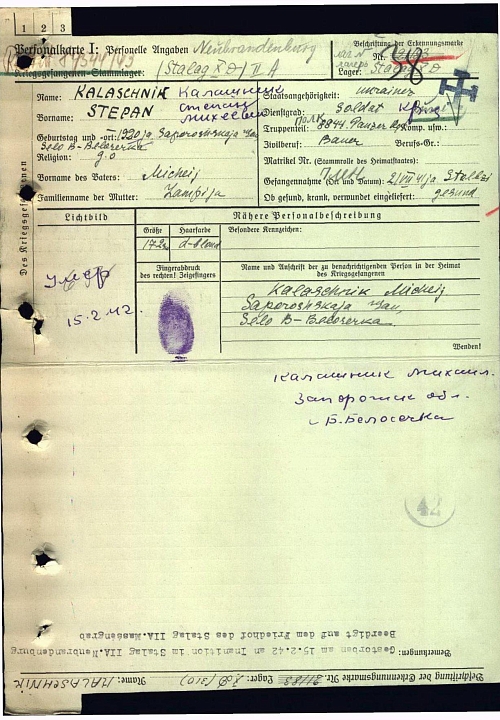 1 2 3
Personalkarte I: Personelle Angaben
Neubrandenburg
Kriegsgefangenen-Stammlager: (Stalag X D) II A
Beschriftung der Erkennungsmarke
Nr.
Lager: Stalag X D
Des Kriegsgefangenen
Name: KALASCHNIK Калашник
Vorname: STEPAN Степан Михеевич
Geburtstag und -ort: 1920 ja. Saporoshskaja
Selo B-Beloserka
Religion: g.o
Vorname des Vaters: Micheij
Familienname der Mutter:
Staatsangehörigkeit: ukrainer
Dienstgrad: Soldat
Truppenteil: полк Komp. usw.:
Zivilberuf: Bauer Berufs-Gr.:
Matrikel Nr. (Stammrolle des Heimatstaates):
Gefangennahme (Ort und Datum):
Ob gesund, krank, verwundet eingeliefert: gesund
Lichtbild
умер
15.2.42.
Nähere Personalbeschreibung
Größe Haarfarbe Besondere Kennzeichen:
172 d-blond
Fingerabdruck
des rechten! Zeigefingers
Name und Anschrift der zu benachrichtigenden Person in der Heimat
des Kriegsgefangenen
Kalaschnik Micheij
Saporoshskaja
Selo B-Beloserka
Wenden!
Калашник Михаил.
Запорожск обл.
с Б.Белосерка
42
Bemerkungen: Gestorben am 15.2.42 an Inanition im Stalag IIA.Neubrandenburg
Beerdigt auf dem Friedhof des Stalag IIA.Massengrab
Beschriftung der Erkennungsmarke Nr. Lager: X D (310) Name: KALASCHNIK